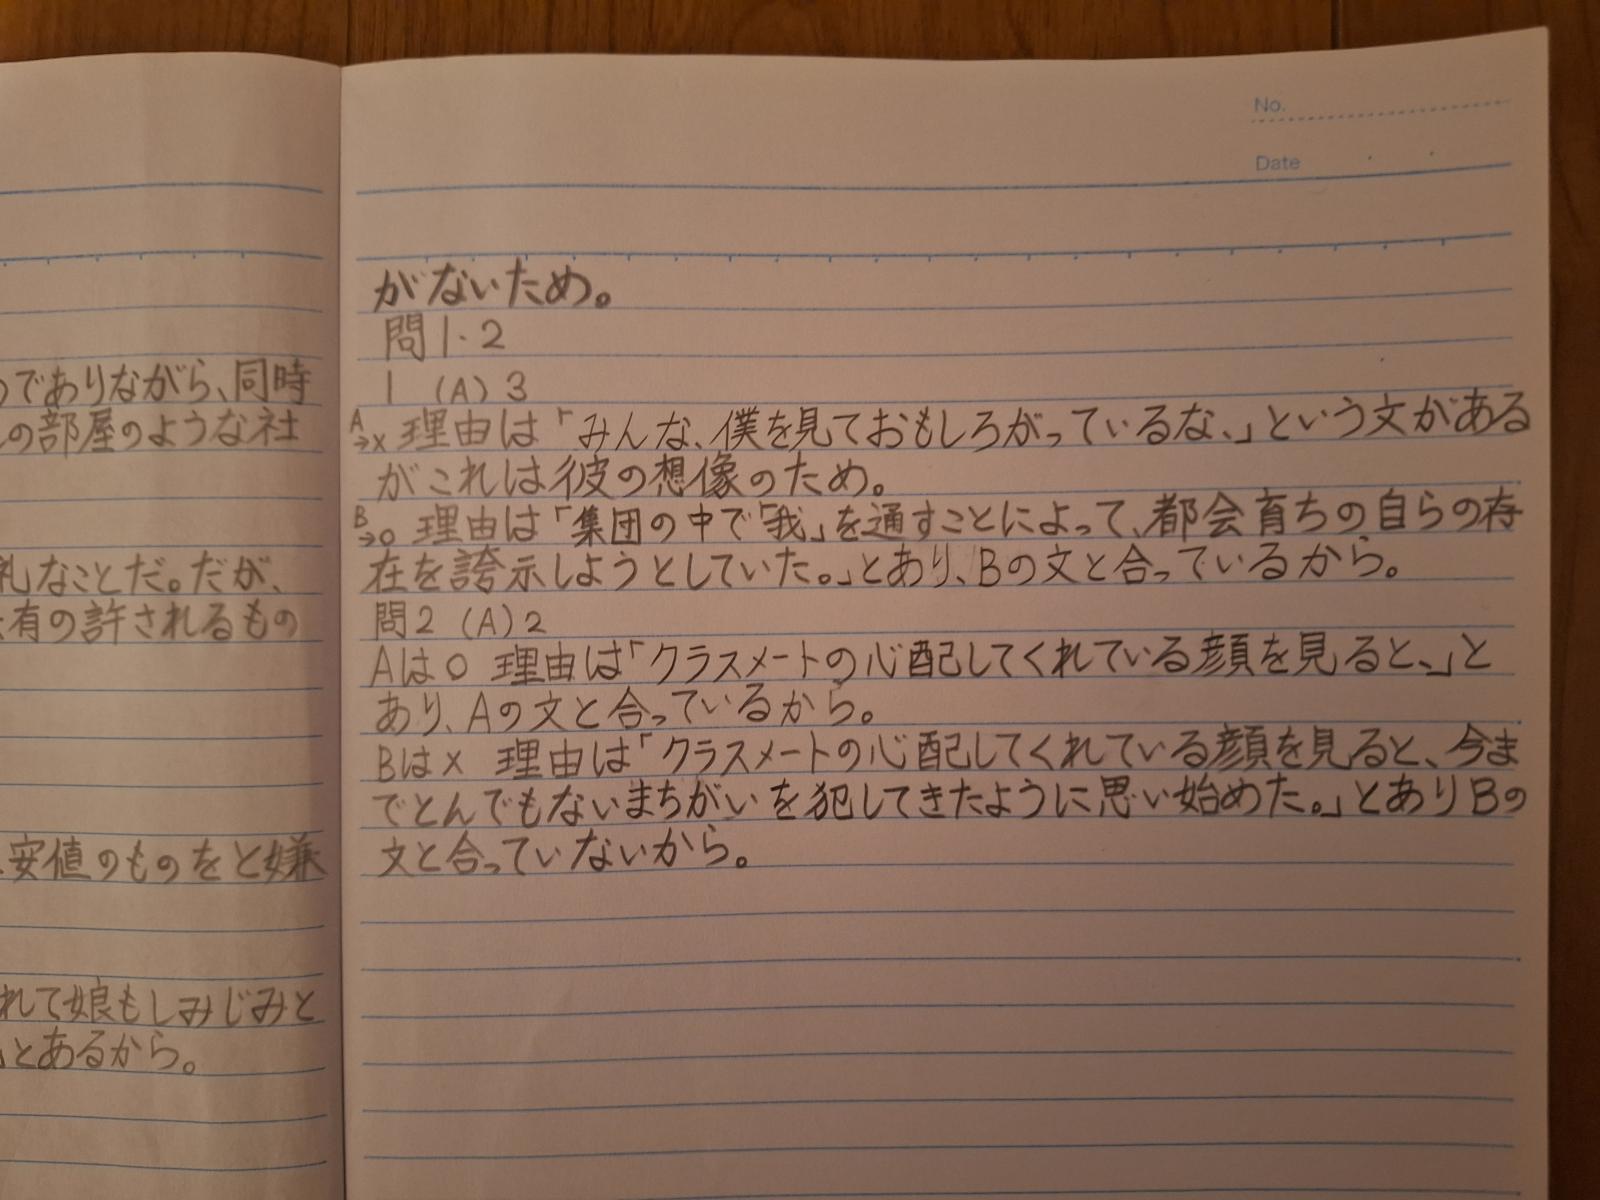 でありながら、同時
の部屋のような社
礼なことだ。だが、
有の許されるもの
安値のものをと嫌
れて娘もしみじみと
」とあるから。
No.
Date
がないため。
問1・2
1 (A) 3
A→× 理由は「みんな、僕を見ておもしろがっているな、」という文がある
がこれは彼の想像のため。
B→○ 理由は「集団の中で「我」を通すことによって、都会育ちの自らの存
在を誇示しようとしていた。」とあり、Bの文と合っているから。
問2 (A) 2
Aは○ 理由は「クラスメートの心配してくれている顔を見ると、」と
あり、Aの文と合っているから。
Bは× 理由は「クラスメートの心配してくれている顔を見ると、今ま
でとんでもないまちがいを犯してきたように思い始めた。」とありBの
文と合っていないから。